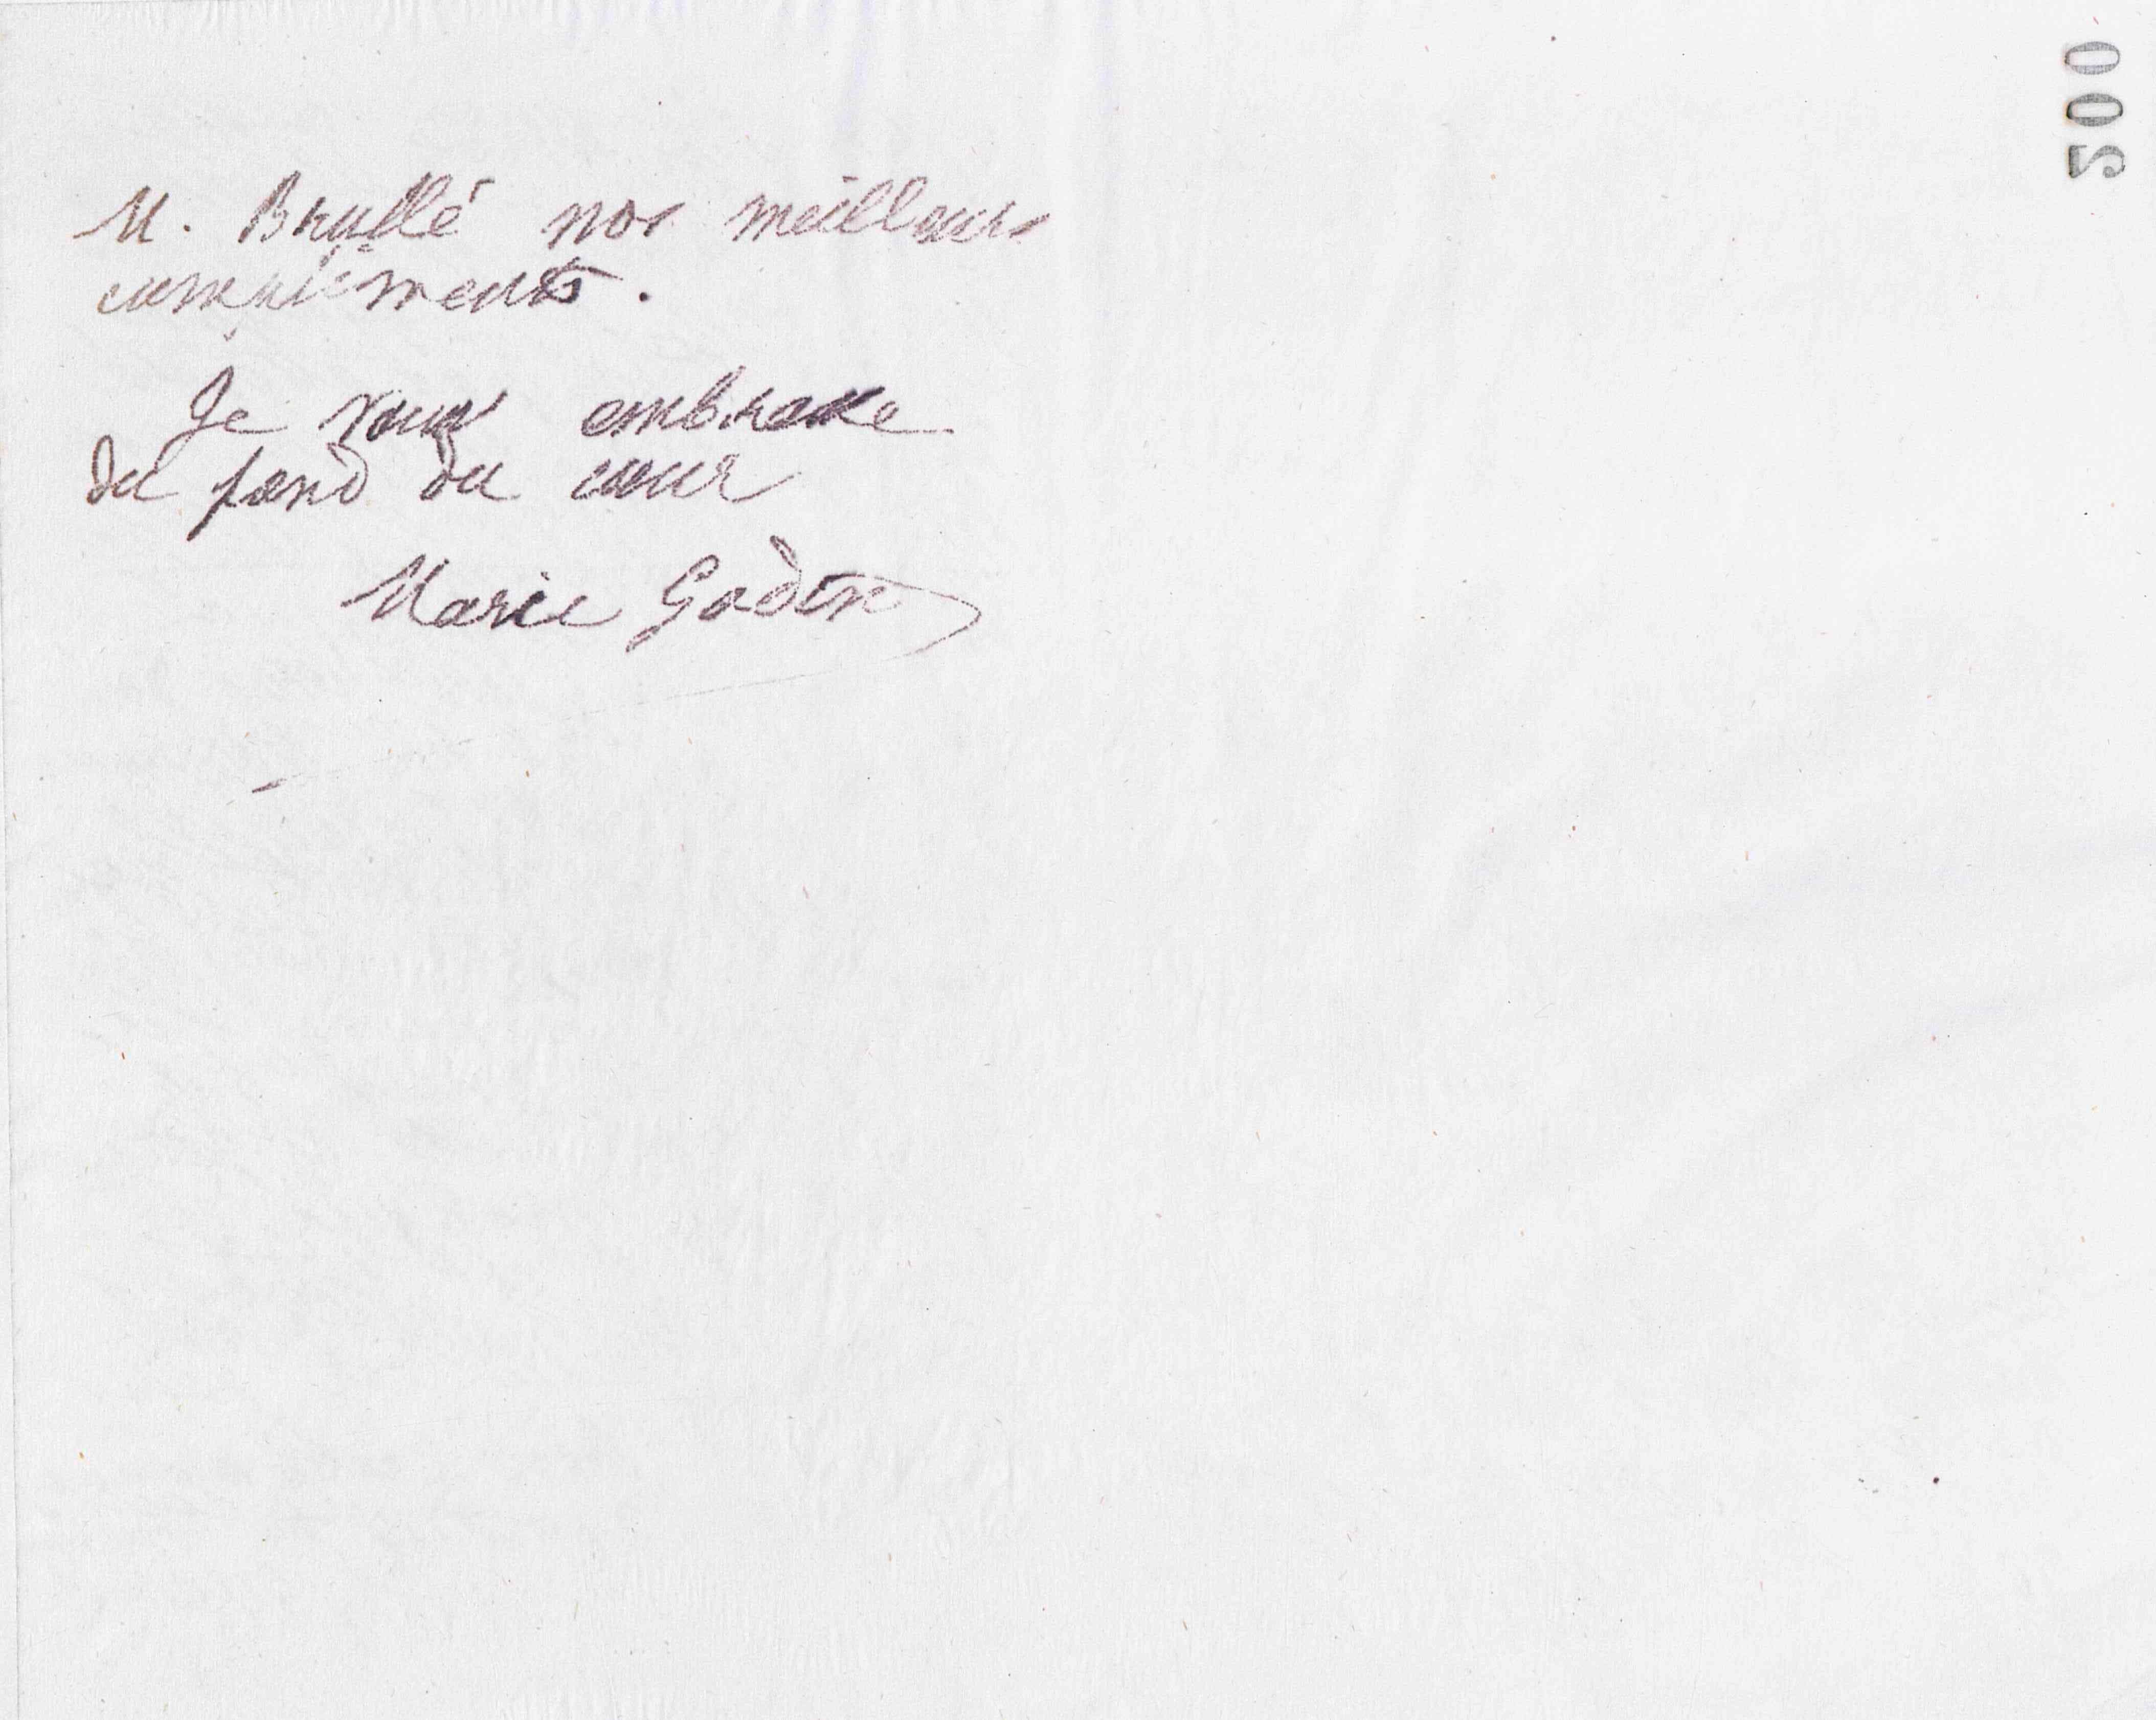 M. Brullé nos meilleurs
compliments.
Je vous embrasse
du fond du cœur
Marie Godin
500